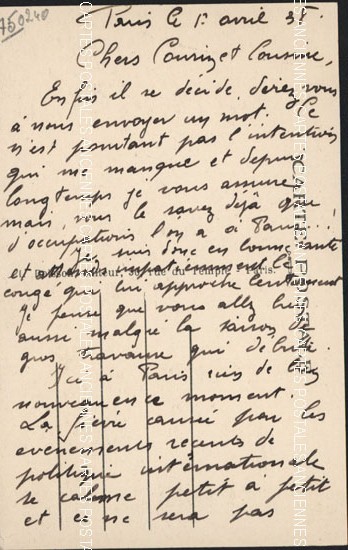 750240
Paris le 1er avril 35
Chers Cousin et Cousine,
Enfin il se décide direz vous
à nous envoyer un mot. Ce
n'est pourtant pas l'intention
qui me manque et depuis
longtemps je vous assure
mais vous le savez déjà que
d'occupations l'on a à Paris...!
Je suis donc en bonne santé
et congé qui lui approche lentement
Je pense que vous allez bien
aussi malgré la saison de
gros travaux qui débute.
Ici à Paris rien de bien
nouveau en ce moment.
La fièvre causée par les
événements récents de
politique internationale
se calme petit à petit
et ce ne sera pas
CARTE POSTALE
rue du Temple, Paris.
CARTES POSTALES ANCIENNES